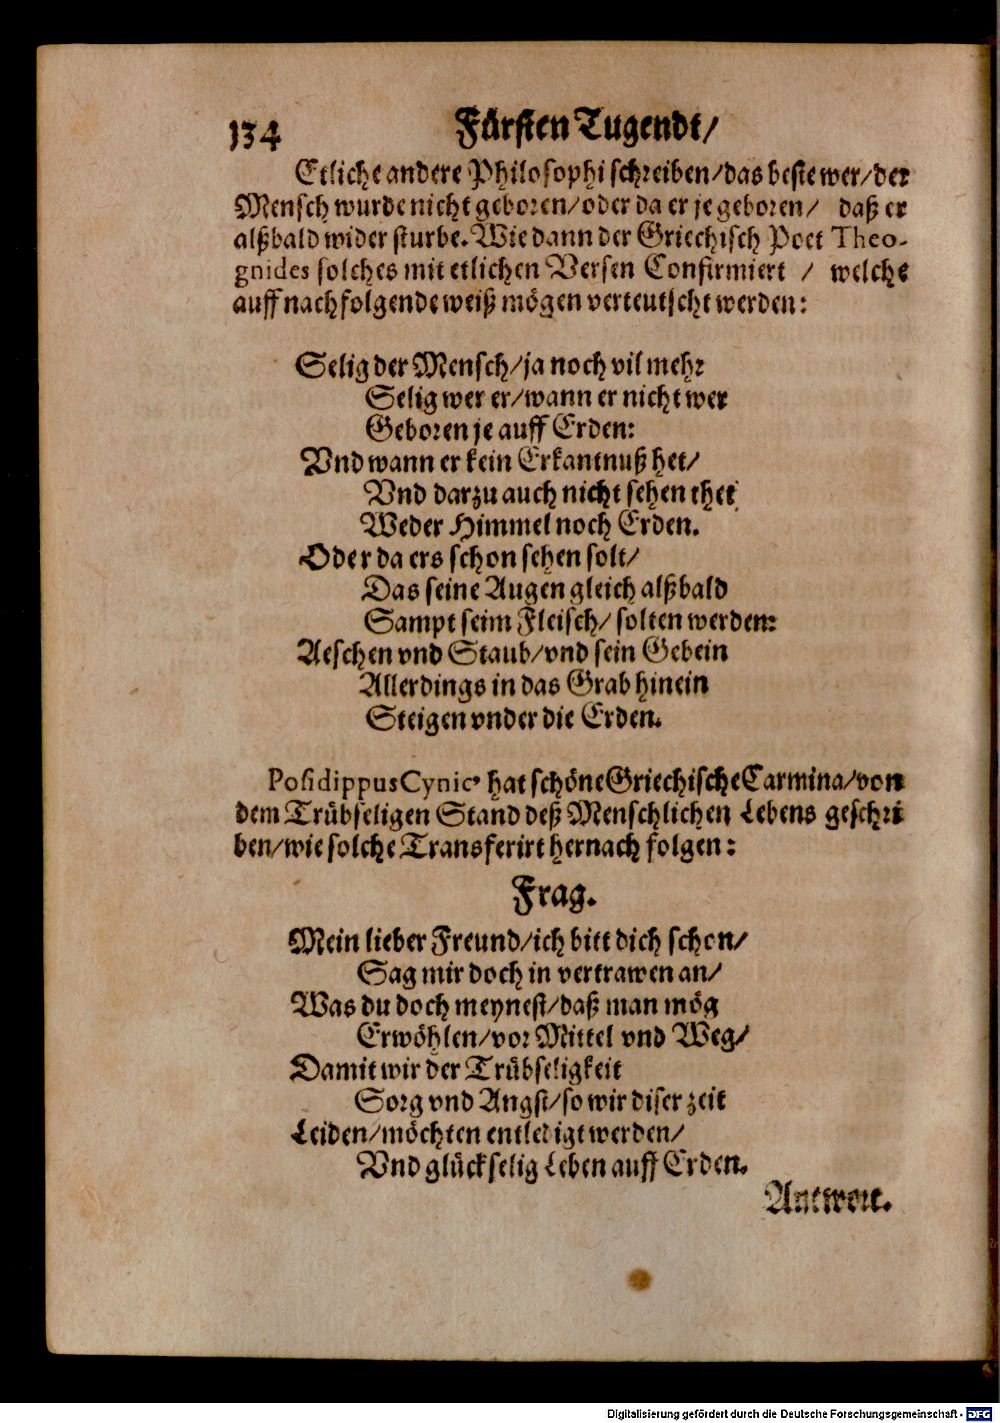 134 Fürsten Tugendt/
Etliche andere Philosophi schreiben/das beste wer/der
Mensch wurde nicht geboren/oder da er je geboren/ daß er
alßbald wider sturbe. Wie dann der Griechisch Poet Theo-
gnides solches mit etlichen Versen Confirmiert / welche
auff nachfolgende weiß mögen verteutscht werden:
Selig der Mensch/ja noch vil mehr
Selig wer er/wann er nicht wer
Geboren je auff Erden:
Vnd wann er kein Erkantnuß het/
Vnd darzu auch nicht sehen thet
Weder Himmel noch Erden.
Oder da ers schon sehen solt/
Das seine Augen gleich alßbald
Sampt seim Fleisch/ solten werden:
Aeschen vnd Staub/vnd sein Gebein
Allerdings in das Grab hinein
Steigen vnder die Erden.
Posidippus Cynic⁹ hat schöne Griechische Carmina/von
dem Trübseligen Stand deß Menschlichen Lebens geschri
ben/wie solche Transferirt hernach folgen:
Frag.
Mein lieber Freund/ich bitt dich schon/
Sag mir doch in vertrawen an/
Was du doch meynest/daß man mög
Erwöhlen/vor Mittel vnd Weg/
Damit wir der Trübseligkeit
Sorg vnd Angst/so wir diser zeit
Leiden/möchten entledigt werden/
Vnd glückselig Leben auff Erden.
Antwort.
Digitalisierung gefördert durch die Deutsche Forschungsgemeinschaft - DFG